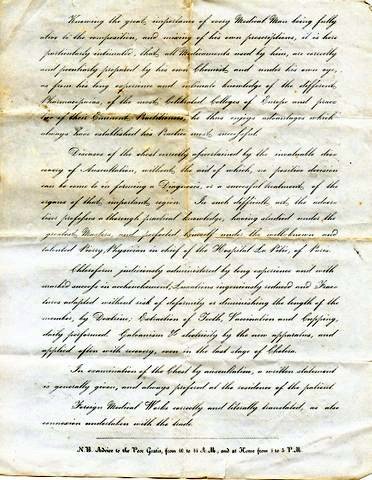 Knowing the great importance of every Medical Man being fully
alive to the composition, and mixing of his own prescriptions, it is here
particularly intimated, that, all Medicaments used by him, are correctly
and peculiarly prepared by his own Chemist, and under his own eye,
as from his long experience and intimate knowledge of the different
Pharmacopoeias, of the most Celebrated Colleges of Europe and prac
of their Eminent Practitioners, he thus enjoys advantages which
always have established his Practice most successful.
Diseases of the chest correctly ascertained by the invaluable disc
overy of Auscultation, without the aid of which, no positive decision
can be come to in forming a Diagnosis, in a successful treatment, of the
organs of that, important region. In such difficult, art, the adver
tiser professes a thorough practical knowledge, having studied under the
greatest Masters, and perfected himself under the well known and
talented Piorry, Physician in chief of the Hospital La Pitié, of Paris.
Chloroform judiciously administered by long experience and with
marked success in accouchement; Luxations ingeniously reduced and Frac
tures adapted without risk of deformity or diminishing the length of the
member, by Dextrine; Extraction of Teeth, Vaccination and Cupping,
daily performed. Galvanism & electricity by the new apparatus, and
applied often with recovery, even in the last stage of Cholera.
In examination of the Chest by auscultation, a written statement
is generally given, and always prefered at the residence of the patient
Foreign Medical Works correctly and literally translated, as also
connexion undertaken with the trade
N.B. Advice to the Poor Gratis, from 10 to 11 A.M; and at Home from 1 to 5 P.M.